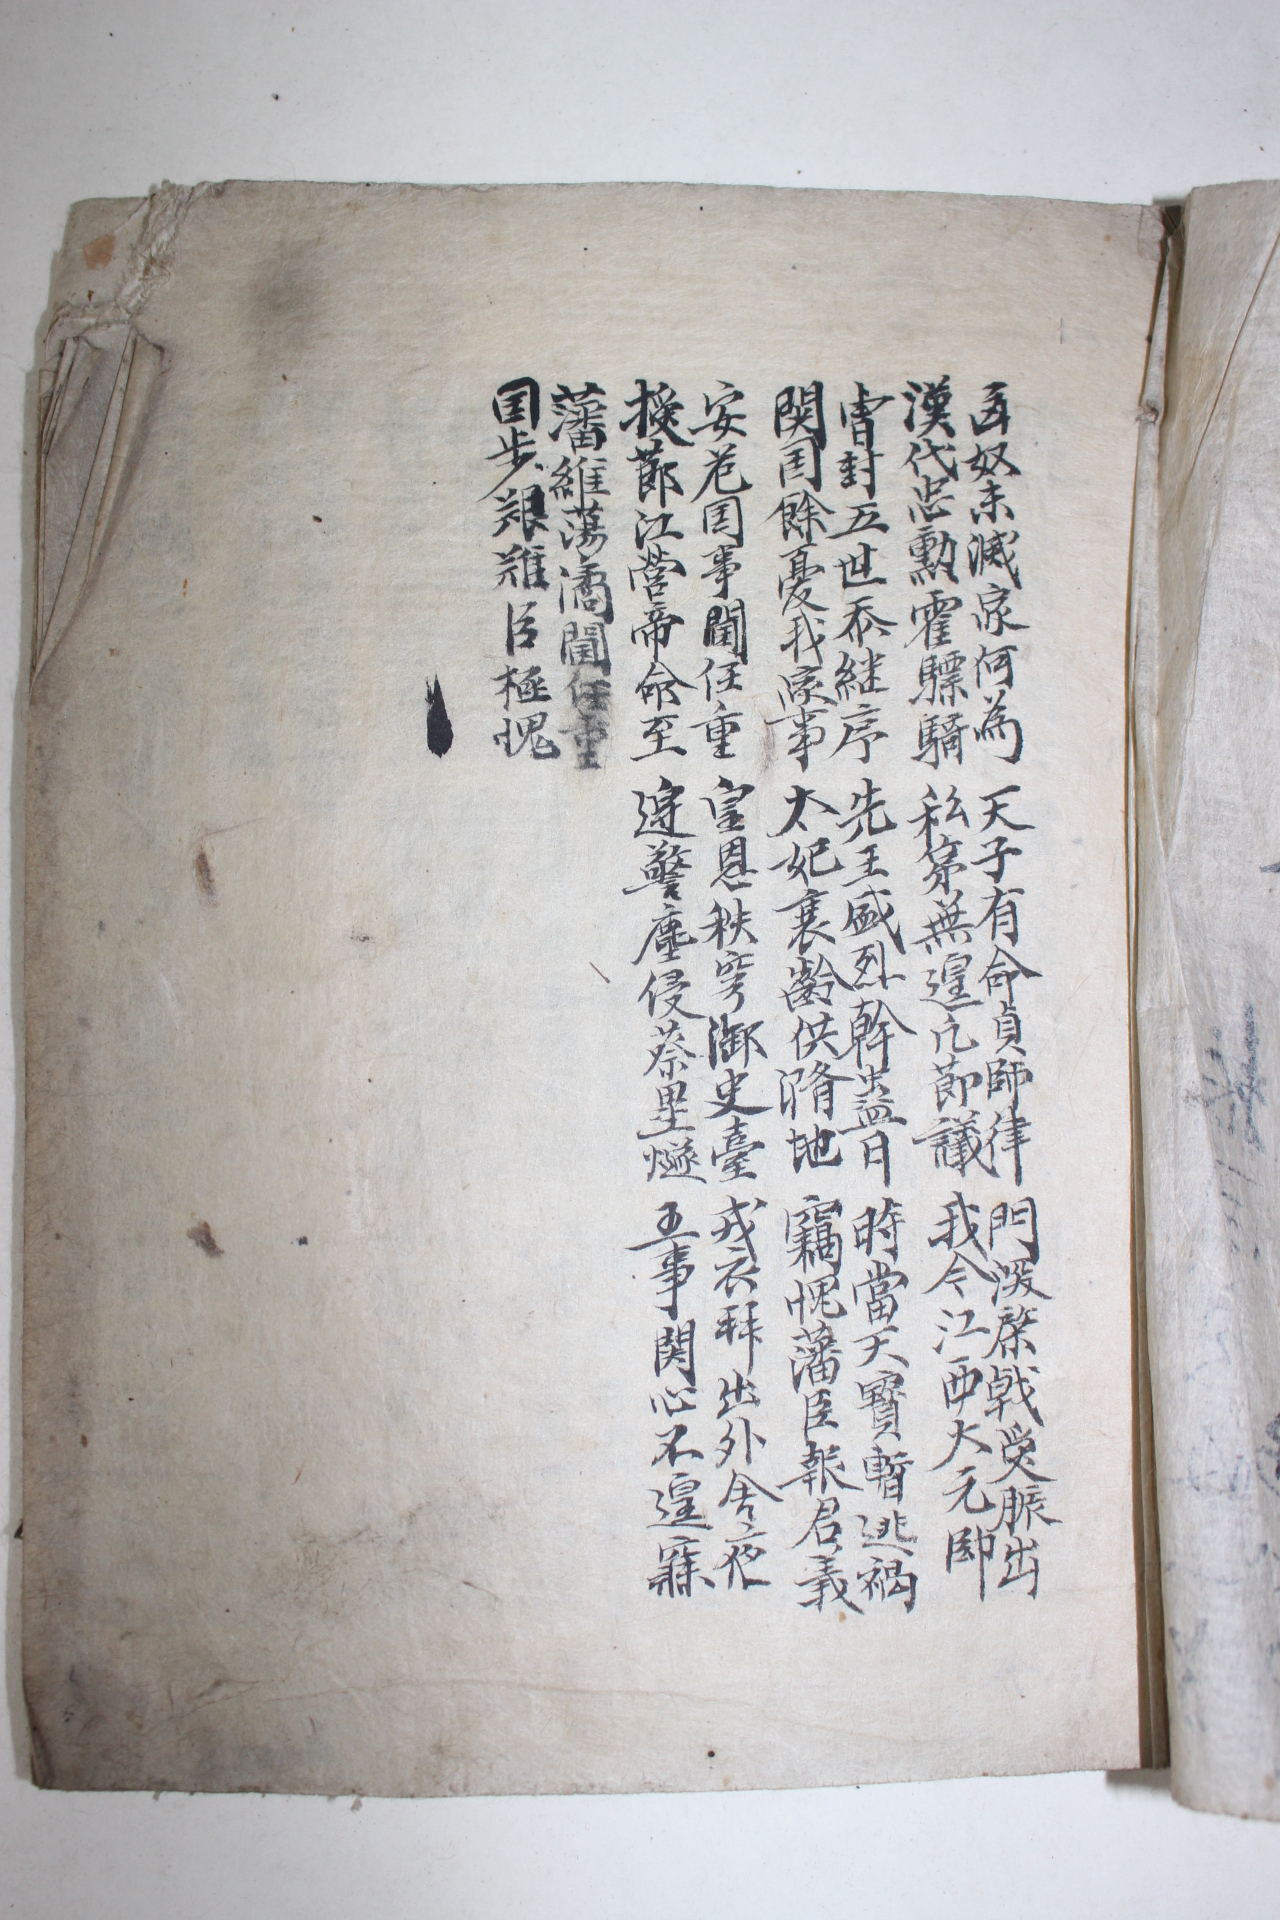 匈奴未滅家何為
漢代忠勳霍驃騎
天子有命貞師律
私第無遑凡節議
門深棨戟受脤出
我今江西大元帥
曺封五世忝継序
関国餘憂我家事
先王盛烈幹蠱日
太妃衰齡供滫地
時當天寶暫逃禍
竊愧藩臣報君義
安危国事閫任重
授節江營帝命至
皇恩秩穹御史臺
警塵侵蔡里燧
戎衣拜出外舍夜
五事関心不遑寐
藩維蕩潏閫任重
国步艱難臣極愧